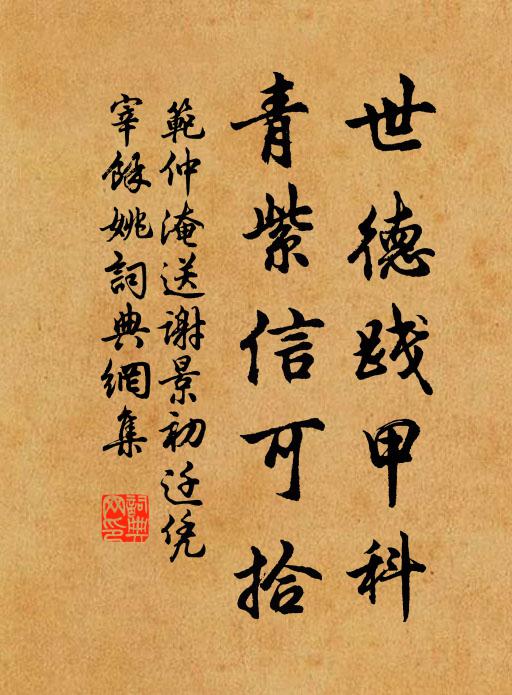 世德践甲科
青紫信可拾
範仲淹送谢景初迁凭
宰餘姚詞典網集
詞典網印